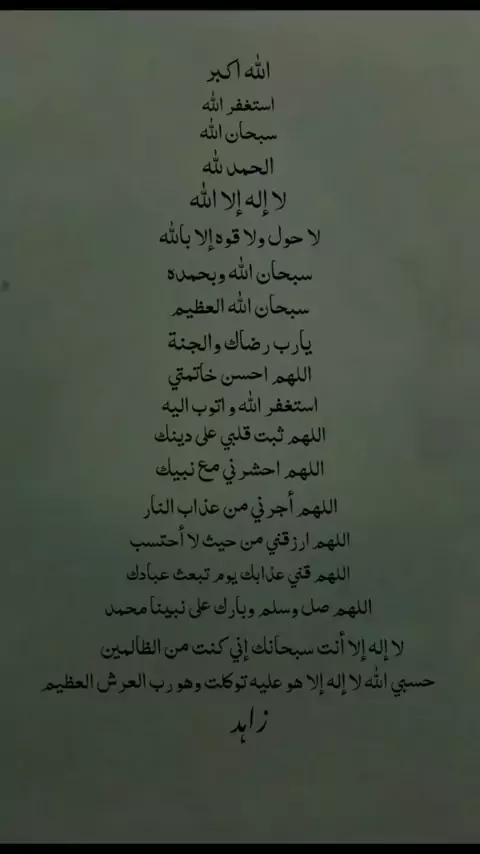 الله اكبر
استغفر الله
سبحان الله
الحمد لله
لا إله إلا الله
لا حول ولا قوه إلا بالله
سبحان الله وبحمده
سبحان الله العظيم
يارب رضاك والجنة
اللهم احسن خاتمتي
استغفر الله و اتوب اليه
اللهم ثبت قلبي على دينك
اللهم احشرني مع نبيك
اللهم أجرني من عذاب النار
اللهم ارزقني من حيث لا أحتسب
اللهم قني عذابك يوم تبعث عبادك
اللهم صل وسلم وبارك على نبينا محمد
لا إله إلا أنت سبحانك إني كنت من الظالمين
حسبي الله لا إله إلا هو عليه توكلت وهو رب العرش العظيم
زاهد